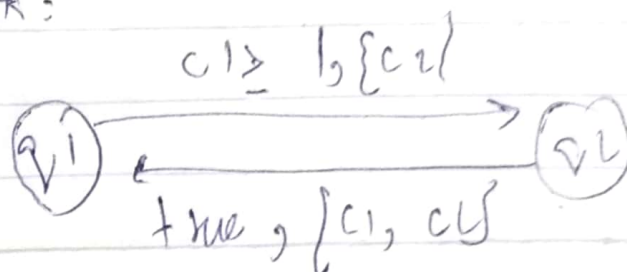 c1≥ 1, {c2}
q1 q2
true, {c1, c2}